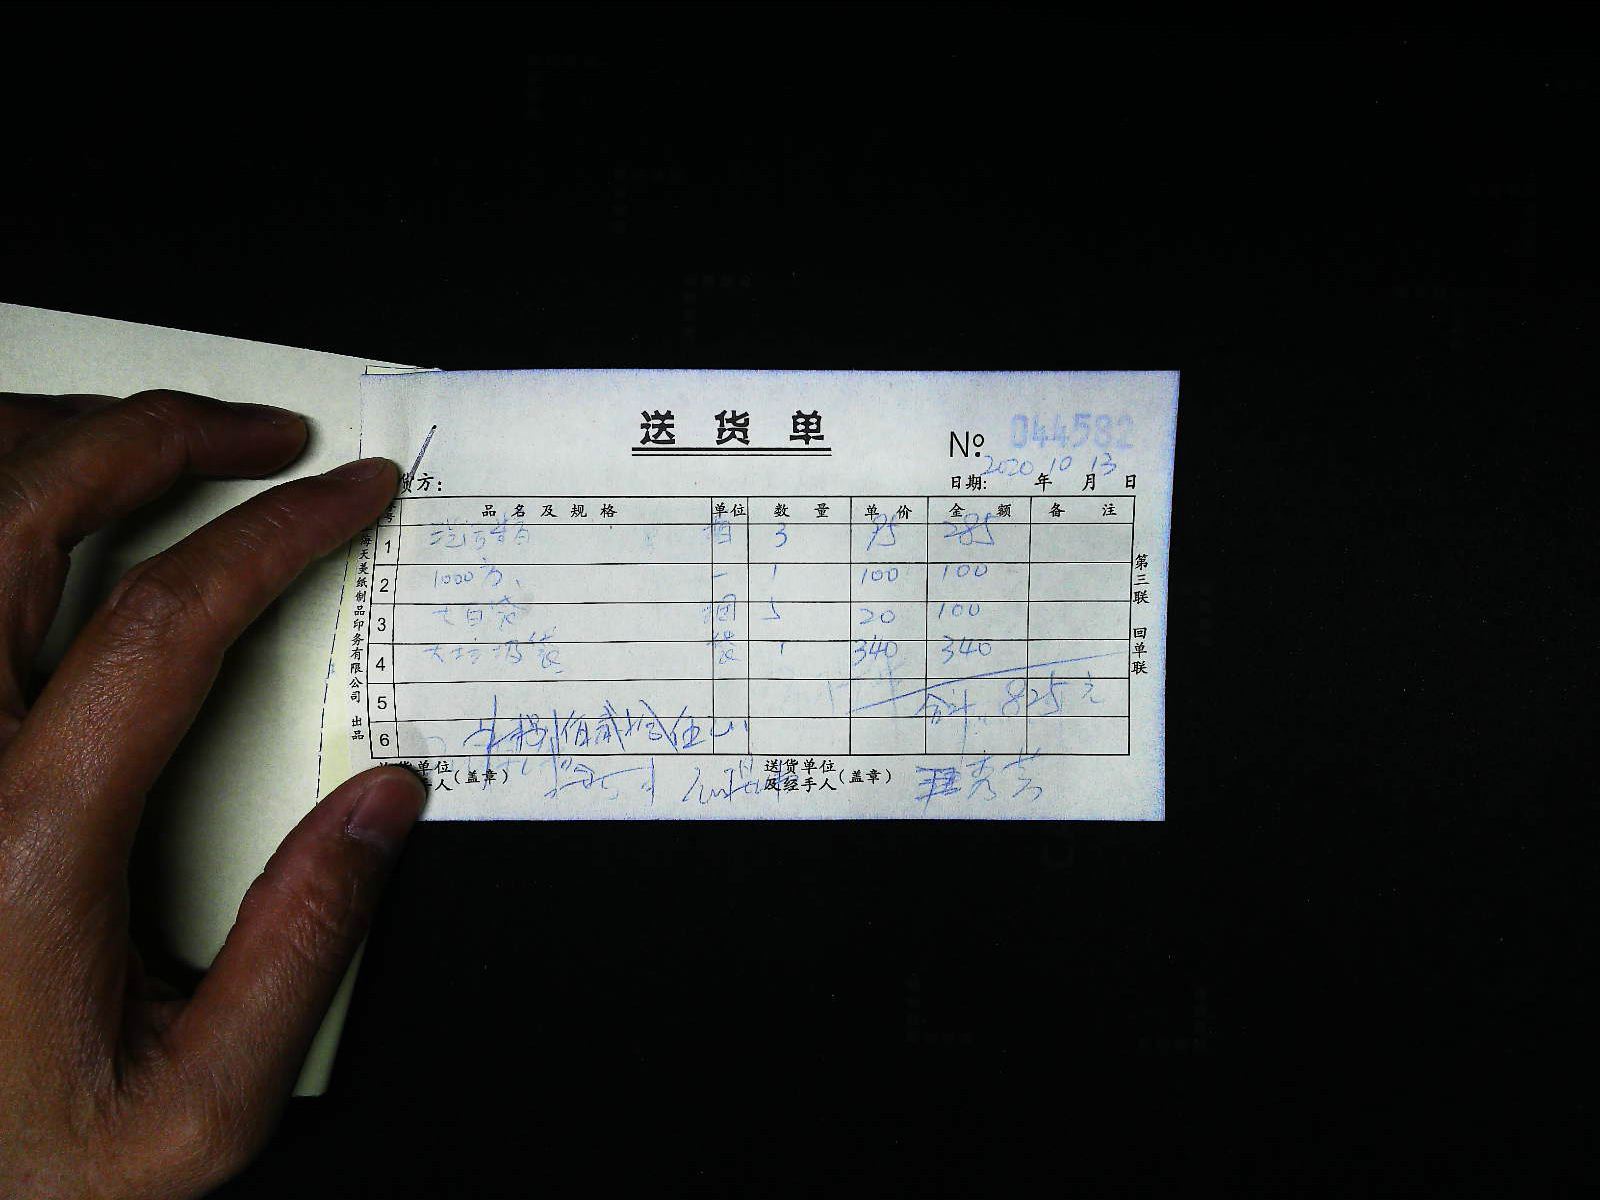 送货单
№ 044582
2020 10 13
货方: 日期: 年 月 日
号 品名及规格 单位 数量 单价 金额 备注
1 洁污精 箱 3 95 285
2 1000方、 一 1 100 100
3 大白袋 捆 5 20 100
4 大垃圾袋 袋 1 340 340
5 合计 825元
6 捌佰贰拾伍
货单位 手人 (盖章) 送货单位及经手人 (盖章) 秀芳
海天美纸制品印务有限公司 出品
第三联 回单联